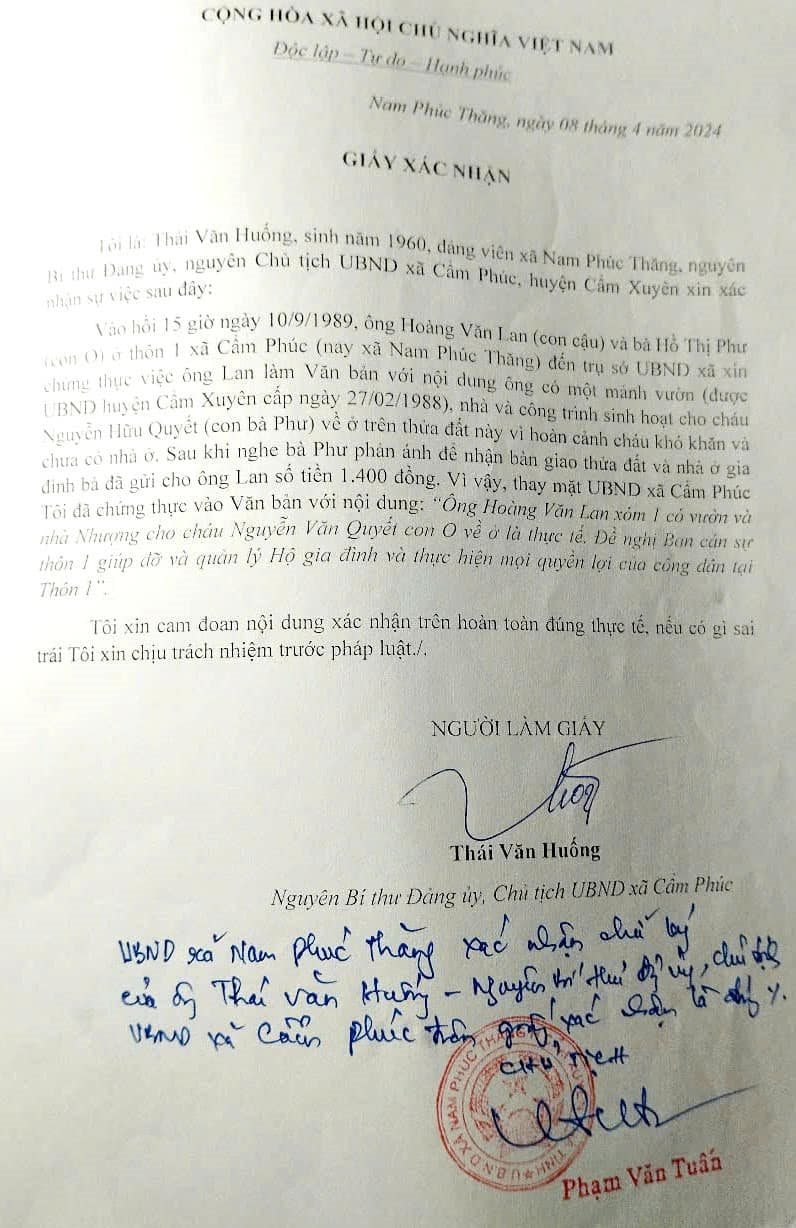 CỘNG HÒA XÃ HỘI CHỦ NGHĨA VIỆT NAM
Độc lập – Tự do – Hạnh phúc
Nam Phúc Thăng, ngày 08 tháng 4 năm 2024
GIẤY XÁC NHẬN
Tôi là: Thái Văn Huống, sinh năm 1960, đảng viên xã Nam Phúc Thăng, nguyên
Bí thư Đảng ủy, nguyên Chủ tịch UBND xã Cẩm Phúc, huyện Cẩm Xuyên xin xác
nhận sự việc sau đây:
Vào hồi 15 giờ ngày 10/9/1989, ông Hoàng Văn Lan (con cậu) và bà Hồ Thị Phư
(con O) ở thôn 1 xã Cẩm Phúc (nay xã Nam Phúc Thăng) đến trụ sở UBND xã xin
chứng thực việc ông Lan làm Văn bản với nội dung ông có một mảnh vườn (được
UBND huyện Cẩm Xuyên cấp ngày 27/02/1988), nhà và công trình sinh hoạt cho cháu
Nguyễn Hữu Quyết (con bà Phư) về ở trên thửa đất này vì hoàn cảnh cháu khó khăn và
chưa có nhà ở. Sau khi nghe bà Phư phản ánh để nhận bàn giao thửa đất và nhà ở gia
đình bà đã gửi cho ông Lan số tiền 1.400 đồng. Vì vậy, thay mặt UBND xã Cẩm Phúc
Tôi đã chứng thực vào Văn bản với nội dung: “Ông Hoàng Văn Lan xóm 1 có vườn và
nhà Nhượng cho cháu Nguyễn Văn Quyết con O về ở là thực tế. Đề nghị Ban cán sự
thôn 1 giúp đỡ và quản lý Hộ gia đình và thực hiện mọi quyền lợi của công dân tại
Thôn 1”.
Tôi xin cam đoan nội dung xác nhận trên hoàn toàn đúng thực tế, nếu có gì sai
trái Tôi xin chịu trách nhiệm trước pháp luật./.
NGƯỜI LÀM GIẤY
Thái Văn Huống
Nguyên Bí thư Đảng ủy, Chủ tịch UBND xã Cẩm Phúc
UBND xã Nam Phúc Thăng xác nhận chữ ký
của ông Thái Văn Huống – Nguyên Bí thư Đảng ủy, chủ tịch
UBND xã Cẩm Phúc trên giấy xác nhận là đúng ./.
CHỦ TỊCH
U.B.N.D XÃ NAM PHÚC THĂNG
Phạm Văn Tuấn